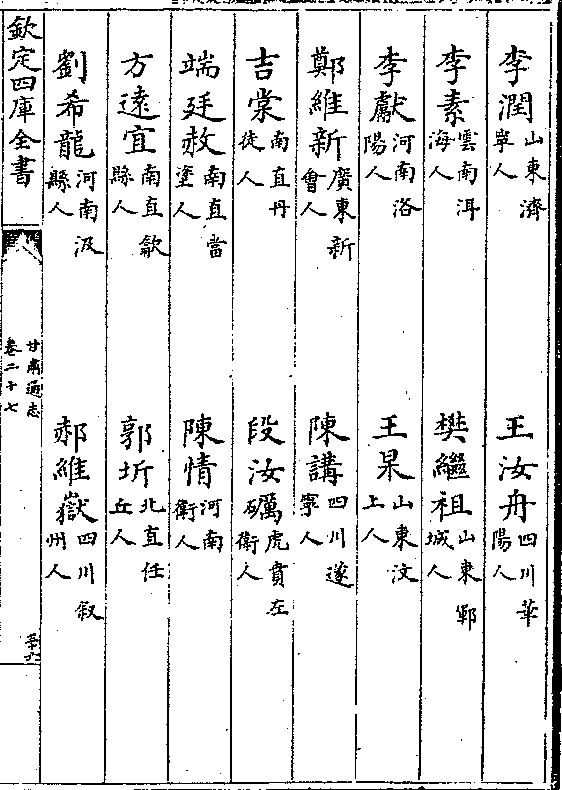 李潤山東濟寧人 王汝舟四川華陽人
李素雲南洱海人 樊繼祖山東鄆城人
李獻河南洛陽人 王杲山東汶上人
鄭維新廣東新會人 陳講四川遂寧人
吉棠南直丹徒人 段汝礪虎賁左衛人
端廷赦南直當塗人 陳情河南衛人
方遠宜南直歙縣人 郭圻北直任丘人
劉希龍河南汲縣人 郝維嶽四川叙州人
欽定四庫全書
甘肅通志
卷二十七